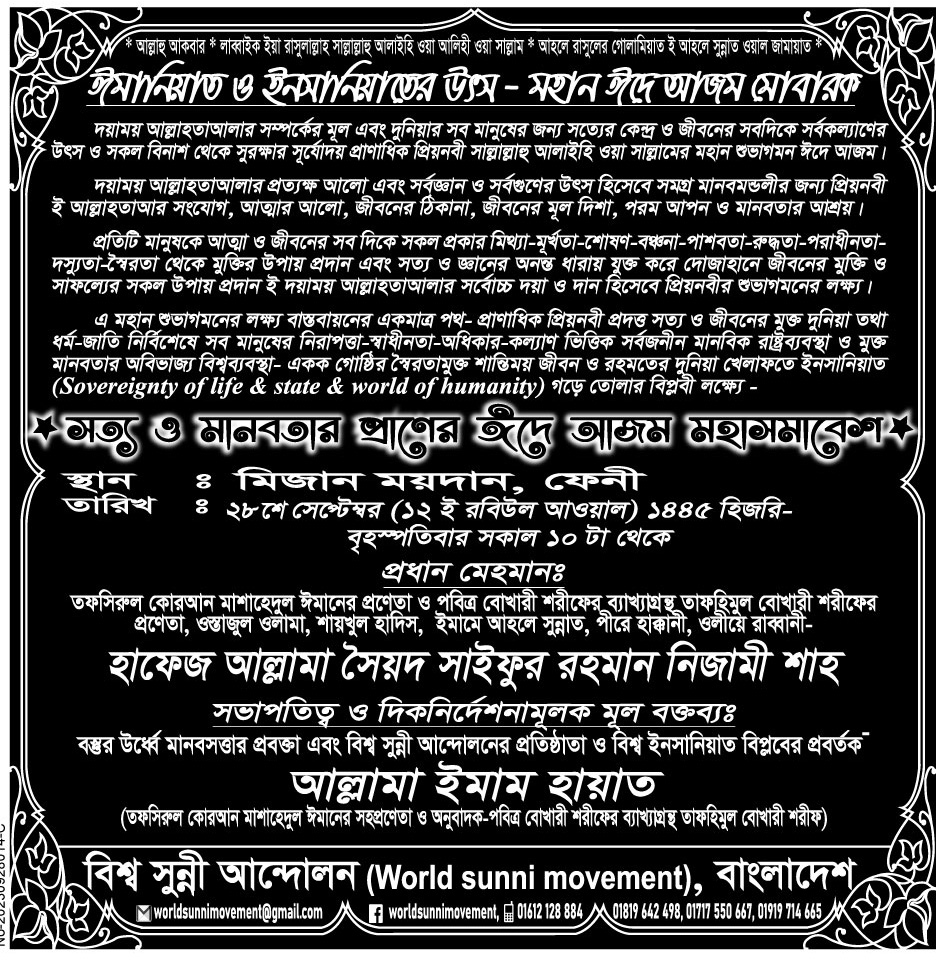 * আল্লাহু আকবার * লাব্বাইক ইয়া রাসুলাল্লাহ সাল্লাল্লাহু আলাইহি ওয়া আলিহী ওয়া সাল্লাম * আহলে রাসুলের গোলামিয়াত ই আহলে সুন্নাত ওয়াল জামায়াত *
ঈমানিয়াত ও ইনসানিয়াতের উৎস - মহান ঈদে আজম মোবারক
দয়াময় আল্লাহতাআলার সম্পর্কের মূল এবং দুনিয়ার সব মানুষের জন্য সত্যের কেন্দ্র ও জীবনের সবদিকে সর্বকল্যাণের
উৎস ও সকল বিনাশ থেকে সুরক্ষার সূর্যোদয় প্রাণাধিক প্রিয়নবী সাল্লাল্লাহু আলাইহি ওয়া সাল্লামের মহান শুভাগমন ঈদে আজম।
দয়াময় আল্লাহতাআলার প্রত্যক্ষ আলো এবং সর্বজ্ঞান ও সর্বগুণের উৎস হিসেবে সমগ্র মানবমন্ডলীর জন্য প্রিয়নবী
ই আল্লাহতাআর সংযোগ, আত্মার আলো, জীবনের ঠিকানা, জীবনের মূল দিশা, পরম আপন ও মানবতার আশ্রয়।
প্রতিটি মানুষকে আত্মা ও জীবনের সব দিকে সকল প্রকার মিথ্যা-মূর্খতা-শোষণ-বঞ্চনা-পাশবতা-রুদ্ধতা-পরাধীনতা-
দস্যুতা-স্বৈরতা থেকে মুক্তির উপায় প্রদান এবং সত্য ও জ্ঞানের অনন্ত ধারায় যুক্ত করে দোজাহানে জীবনের মুক্তি ও
সাফল্যের সকল উপায় প্রদান ই দয়াময় আল্লাহতাআলার সর্বোচ্চ দয়া ও দান হিসেবে প্রিয়নবীর শুভাগমনের লক্ষ্য।
এ মহান শুভাগমনের লক্ষ্য বাস্তবায়নের একমাত্র পথ- প্রাণাধিক প্রিয়নবী প্রদত্ত সত্য ও জীবনের মুক্ত দুনিয়া তথা
ধর্ম-জাতি নির্বিশেষে সব মানুষের নিরাপত্তা-স্বাধীনতা-অধিকার-কল্যাণ ভিত্তিক সর্বজনীন মানবিক রাষ্ট্রব্যবস্থা ও মুক্ত
মানবতার অবিভাজ্য বিশ্বব্যবস্থা- একক গোষ্ঠির স্বৈরতামুক্ত শান্তিময় জীবন ও রহমতের দুনিয়া খেলাফতে ইনসানিয়াত
(Sovereignty of life & state & world of humanity) গড়ে তোলার বিপ্লবী লক্ষ্যে -
★ সত্য ও মানবতার প্রাণের ঈদে আজম মহাসমাবেশ ★
স্থান : মিজান ময়দান, ফেনী
তারিখ : ২৮শে সেপ্টেম্বর (১২ ই রবিউল আওয়াল) ১৪৪৫ হিজরি-
বৃহস্পতিবার সকাল ১০ টা থেকে
প্রধান মেহমানঃ
তফসিরুল কোরআন মাশাহেদুল ঈমানের প্রণেতা ও পবিত্র বোখারী শরীফের ব্যাখ্যাগ্রন্থ তাফহিমুল বোখারী শরীফের
প্রণেতা, ওস্তাজুল ওলামা, শায়খুল হাদিস, ইমামে আহলে সুন্নাত, পীরে হাক্কানী, ওলীয়ে রাব্বানী-
হাফেজ আল্লামা সৈয়দ সাইফুর রহমান নিজামী শাহ
সভাপতিত্ব ও দিকনির্দেশনামূলক মূল বক্তব্যঃ
বস্তুর উর্ধ্বে মানবসত্তার প্রবক্তা এবং বিশ্ব সুন্নী আন্দোলনের প্রতিষ্ঠাতা ও বিশ্ব ইনসানিয়াত বিপ্লবের প্রবর্তক-
আল্লামা ইমাম হায়াত
(তফসিরুল কোরআন মাশাহেদুল ঈমানের সহপ্রণেতা ও অনুবাদক-পবিত্র বোখারী শরীফের ব্যাখ্যাগ্রন্থ তাফহিমুল বোখারী শরীফ)
বিশ্ব সুন্নী আন্দোলন (World sunni movement), বাংলাদেশ
worldsunnimovement@gmail.com worldsunnimovement, 01612 128 884 01819 642 498, 01717 550 667, 01919 714 665
No-20230928014-C